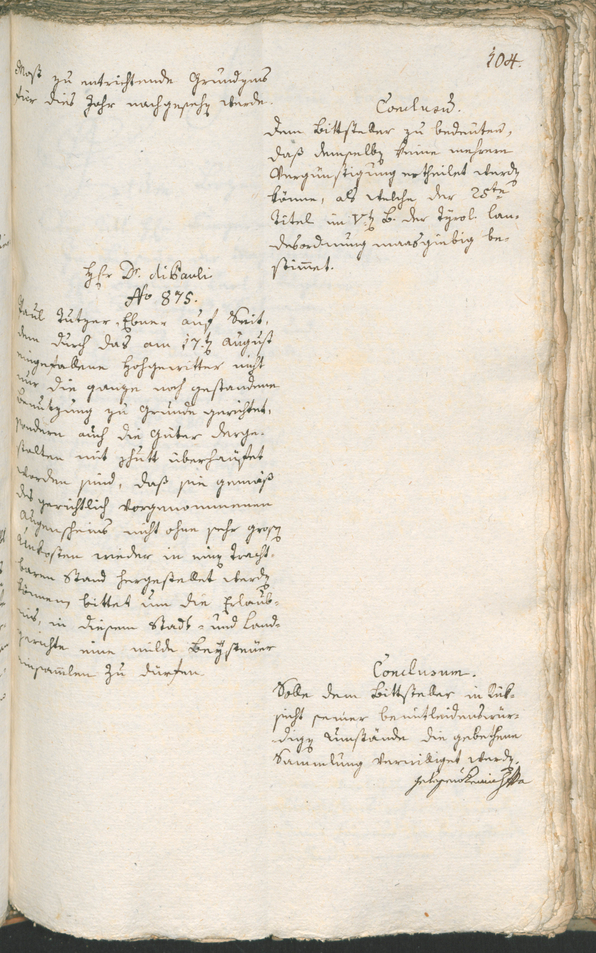 104.
Maß zu entrichtende Grundzins
für dies Jahr nachgesehen werde.
Conclusum.
Dem Bittsteller zu bedeuten,
daß demselben keine mehrere
Vergünstigung ertheilet werden
könne, als welche der 25te
Titel im Vten B. der Tyrol. Lan-
desordnung maasgiebig be-
stimmet.
Hr Dr. diPauli
No 875.
Paul Tutzer, Ebner auf Seit,
dem durch das am 17ten August
eingefallene Hohgewitter nicht
nur die ganze noch gestandene
Benutzung zu Grunde gerichtet,
sondern auch die Güter derge-
stalten mit Schutt überhäufet
worden sind, daß sie gemäß
des gerichtlich vorgenommenen
Augenscheins nicht ohne sehr große
Unkosten wieder in einen
baren Stand hergestellet werden
können, bittet um die Erlaub-
nis, in diesem Stadt- und Land-
gerichte eine milde Beysteuer
einsammlen zu dürfen
Conclusum.
Solle dem Bittsteller in Rük-
sicht seiner bemitleidenswür-
digen Umstände die gebethene
Sammlung verwilliget werden.